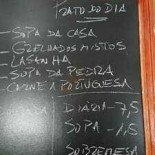 PRATO DO DIA
- SOPA DA CASA
- GRELHADOS MISTOS
- LASANHA
- SOPA DA PEDRA
- CARNE À PORTUGUESA
DIÁRIA - 7,5
SOPA - 1,5
SOBREMESA